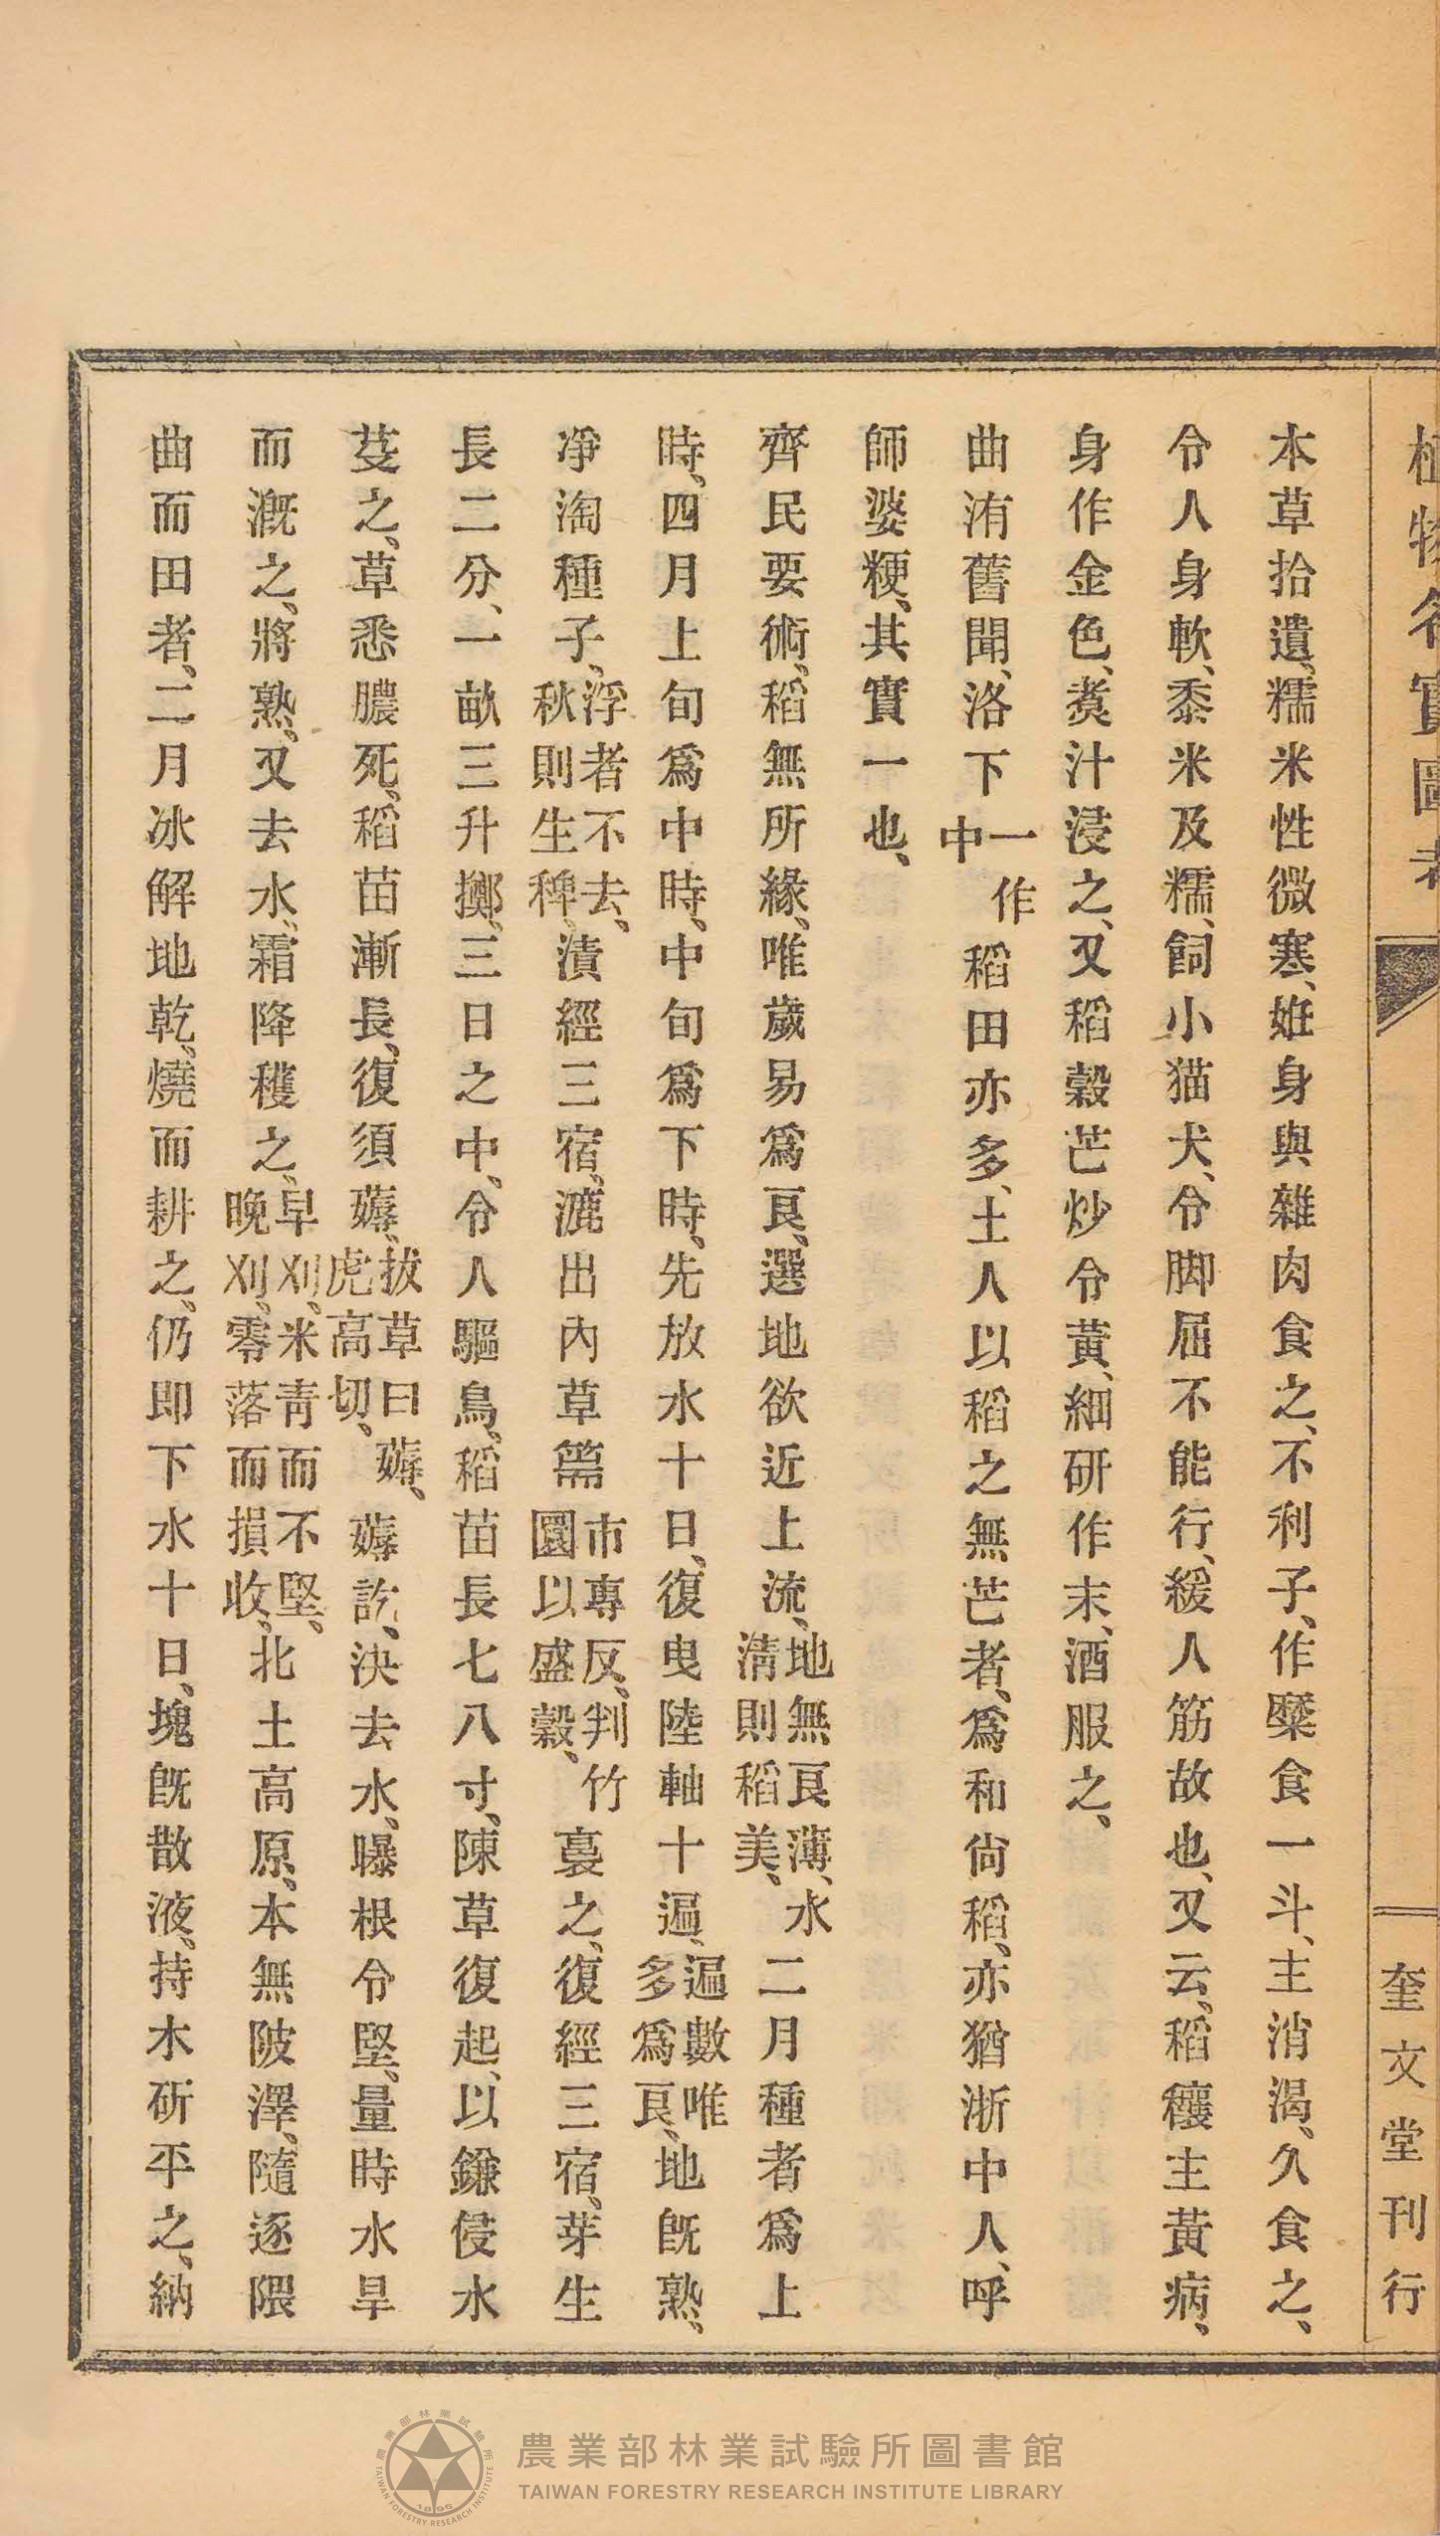 植物名實圖考
奎文堂刊行
本草拾遺、糯米性微寒、姙身與雜肉食之、不利子、作糜食一斗、主消渴、久食之、
令人身軟、黍米及糯、飼小猫犬、令脚屈不能行、緩人筋故也、又云、稻穰主黃病、
身作金色、煑汁浸之、又稻穀芒炒令黃、細研作末、酒服之、
曲洧舊聞、洛下一作中稻田亦多、土人以稻之無芒者、爲和尙稻、亦猶浙中人、呼
師婆粳、其實一也、
齊民要術、稻無所緣、唯歲易爲良、選地欲近上流、地無良薄、水淸則稻美、二月種者爲上
時、四月上旬爲中時、中旬爲下時、先放水十日、復曳陸軸十遍、遍數唯多爲良、地旣熟、
凈淘種子、浮者不去、秋則生稗、漬經三宿、漉出內草篅市專反、判竹圜以盛穀、裛之、復經三宿、芽生
長二分、一畝三升擲、三日之中、令人驅鳥、稻苗長七八寸、陳草復起、以鎌侵水
芟之、草悉膿死、稻苗漸長、復須薅、拔草曰薅、虎高切、薅訖、決去水、曝根令堅、量時水旱
而漑之、將熟、又去水、霜降穫之、早刈、米靑而不堅、晚刈、零落而損收、北土高原、本無陂澤、隨逐隈
曲而田者、二月冰解地乾、燒而耕之、仍即下水十日、塊旣散液、持木斫平之、納
農業部林業試驗所圖書館
TAIWAN FORESTRY RESEARCH INSTITUTE LIBRARY
農業部林業試驗所
TAIWAN FORESTRY RESEARCH INSTITUTE
1896